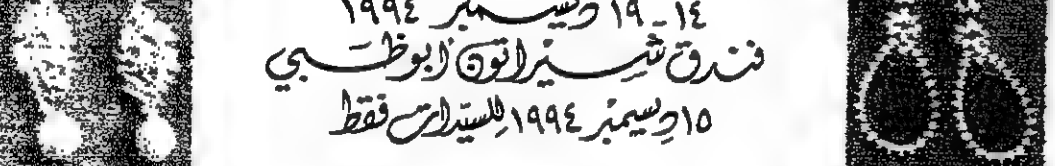 ١٤ - ١٩ ديسمبر ١٩٩٤
فندق شيراتون أبوظبي
١٥ ديسمبر ١٩٩٤ للسيدات فقط